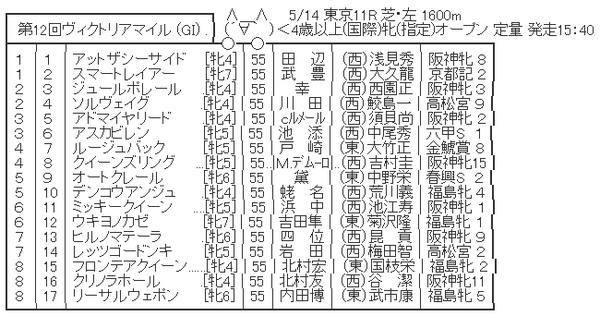 第12回ヴィクトリアマイル (GI) . ( ´∀`) 5/14 東京11R 芝・左 1600m
<4歳以上(国際)牝(指定)オープン 定量 発走15:40
1 1 アットザシーサイド [牝4] 55 田 辺 (西)浅見秀 阪神牝 8
1 2 スマートレイアー [牝7] 55 武 豊 (西)大久龍 京都記 2
2 3 ジュールポレール [牝4] 55 幸 (西)西園正 阪神牝 3
2 4 ソルヴェイグ [牝4] 55 川 田 (西)鮫島一 高松宮 9
3 5 アドマイヤリード [牝4] 55 cルメール (西)須貝尚 阪神牝 2
3 6 アスカビレン [牝5] 55 池 添 (西)中尾秀 六甲S 1
4 7 ルージュバック [牝5] 55 戸 崎 (東)大竹正 金鯱賞 8
4 8 クイーンズリング ...[牝5] 55 M.デムーロ (西)吉村圭 阪神牝15
5 9 オートクレール [牝6] 55 黛 (東)中野栄 春興S 2
5 10 デンコウアンジュ [牝4] 55 蛯 名 (西)荒川義 福島牝 4
6 11 ミッキークイーン [牝5] 55 浜 中 (西)池江寿 阪神牝 1
6 12 ウキヨノカゼ [牝7] 55 吉田隼 (東)菊沢隆 福島牝 1
7 13 ヒルノマテーラ [牝6] 55 四 位 (西)昆 貢 阪神牝 9
7 14 レッツゴードンキ [牝5] 55 岩 田 (西)梅田智 高松宮 2
8 15 フロンテアクイーン......[牝4] 55 北村宏 (東)国枝栄 福島牝 2
8 16 クリノラホール [牝4] 55 北村友 (西)谷 潔 阪神牝11
8 17 リーサルウェポン [牝6] 55 内田博 (東)武市康 福島牝 5